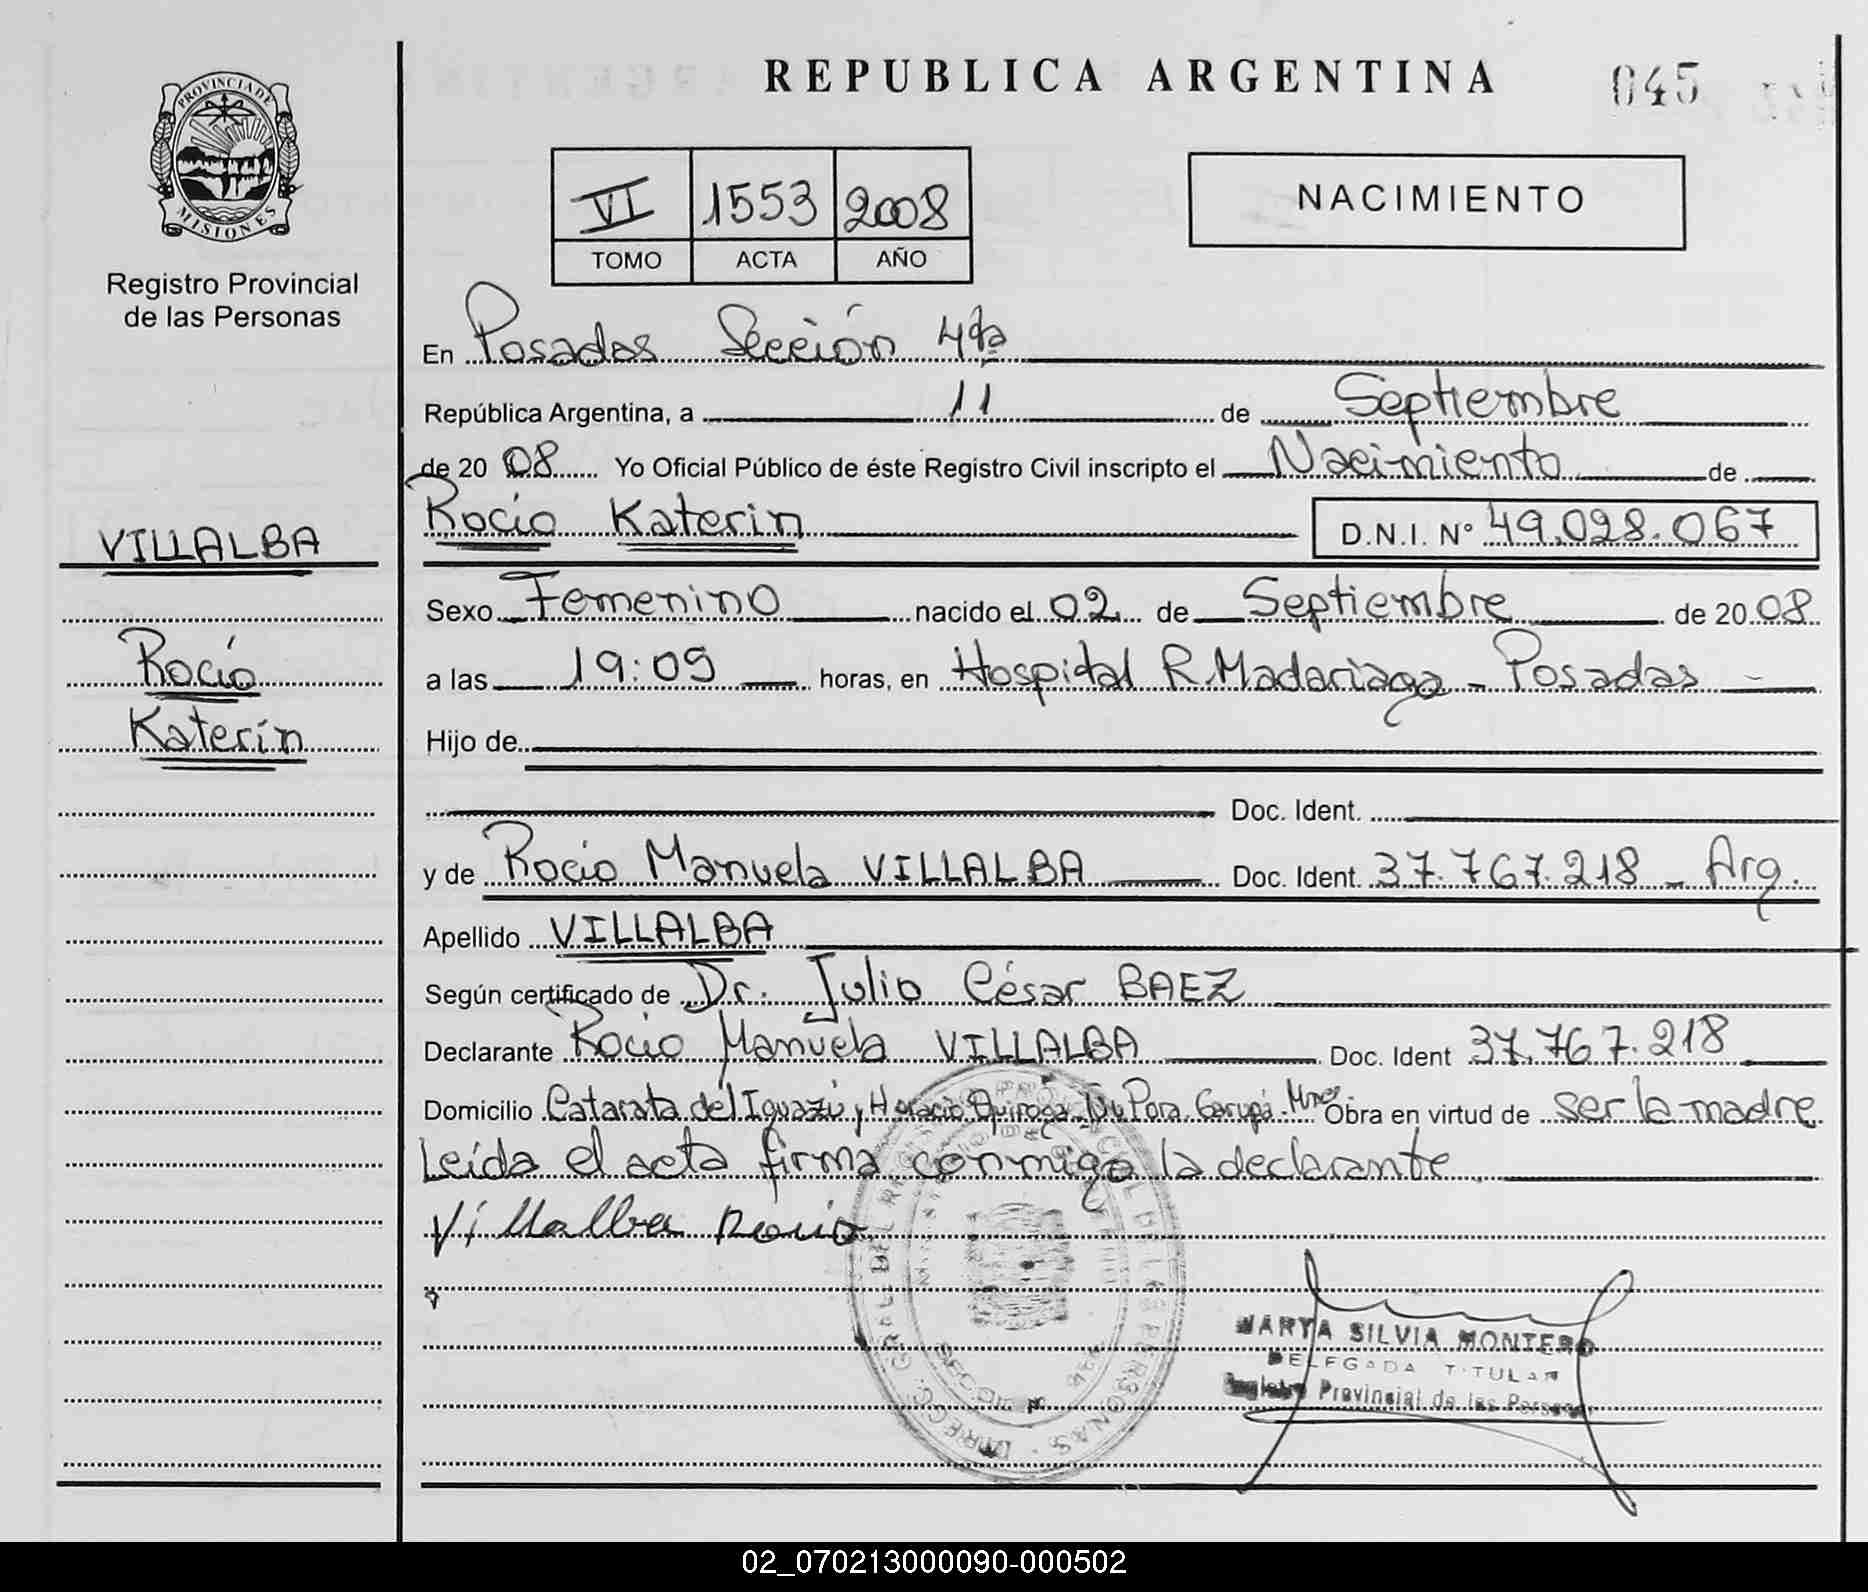 REPUBLICA ARGENTINA
045
PROVINCIA DE
MISIONES
Registro Provincial
de las Personas
VI 1553 2008
TOMO ACTA AÑO
NACIMIENTO
En Posadas Sección 4ta
República Argentina, a 11 de Septiembre
de 20 08 Yo Oficial Público de éste Registro Civil inscripto el Nacimiento de
Rocío Katerin D.N.I. N° 49.028.067
VILLALBA
Rocío
Katerin
Sexo Femenino nacido el 02 de Septiembre de 20 08
a las 19:09 horas, en Hospital R. Madariaga - Posadas -
Hijo de
Doc. Ident.
y de Rocio Manuela VILLALBA Doc. Ident. 37.767.218 - Arg.
Apellido VILLALBA
Según certificado de Dr. Julio César BAEZ
Declarante Rocio Manuela VILLALBA Doc. Ident 37.767.218
Domicilio Catarata del Iguazú y Horacio Quiroga Ñu Pora Garupá Mnes Obra en virtud de ser la madre
Leída el acta firma conmigo la declarante
Villalba Rocio
MARYA SILVIA MONTERO
DELEGADA TITULAR
Registro Provincial de las Personas
02_070213000090-000502